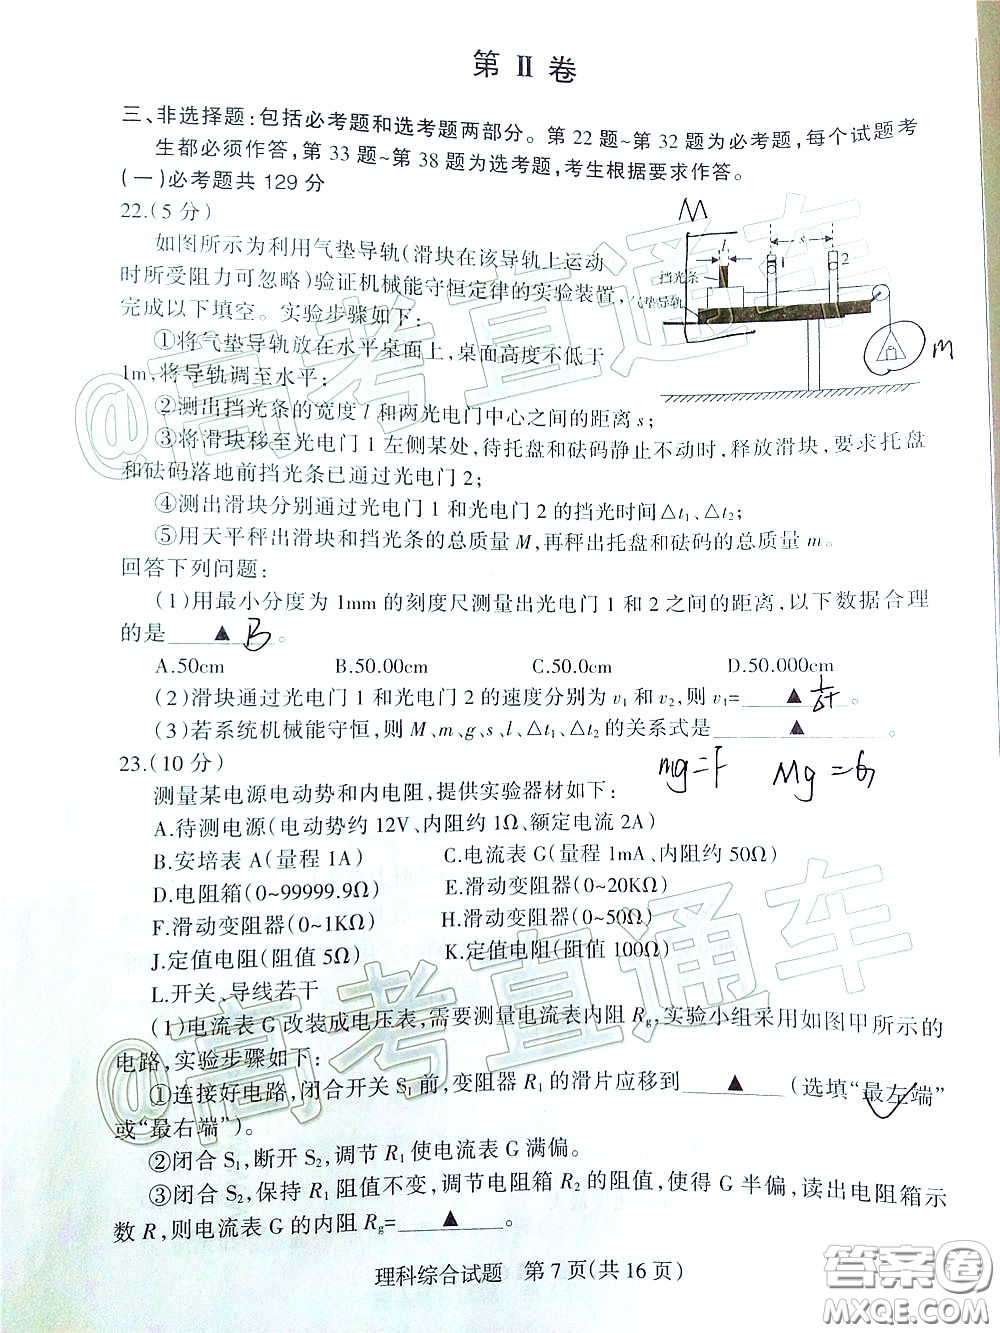 第 Ⅱ 卷
三、非选择题:包括必考题和选考题两部分。第 22 题~第 32 题为必考题,每个试题考
生都必须作答,第 33 题~第 38 题为选考题,考生根据要求作答。
(一)必考题共 129 分
22.(5 分)
如图所示为利用气垫导轨(滑块在该导轨上运动
时所受阻力可忽略)验证机械能守恒定律的实验装置,
完成以下填空。实验步骤如下:
①将气垫导轨放在水平桌面上,桌面高度不低于
1m,将导轨调至水平;
M
l
s
1
2
挡光条
气垫导轨
m
②测出挡光条的宽度 l 和两光电门中心之间的距离 s;
③将滑块移至光电门 1 左侧某处,待托盘和砝码静止不动时,释放滑块,要求托盘
和砝码落地前挡光条已通过光电门 2;
④测出滑块分别通过光电门 1 和光电门 2 的挡光时间△t₁、△t₂;
⑤用天平秤出滑块和挡光条的总质量 M,再秤出托盘和砝码的总质量 m。
回答下列问题:
(1)用最小分度为 1mm 的刻度尺测量出光电门 1 和 2 之间的距离,以下数据合理
的是 ▲ B 。
A.50cm B.50.00cm C.50.0cm D.50.000cm
(2)滑块通过光电门 1 和光电门 2 的速度分别为 v₁ 和 v₂,则 v₁= ▲ 。
(3)若系统机械能守恒,则 M、m、g、s、l、△t₁、△t₂ 的关系式是 ▲ 。
mg=F Mg=
23.(10 分)
测量某电源电动势和内电阻,提供实验器材如下:
A.待测电源(电动势约 12V、内阻约 1Ω、额定电流 2A)
B.安培表 A(量程 1A) C.电流表 G(量程 1mA、内阻约 50Ω)
D.电阻箱(0~99999.9Ω) E.滑动变阻器(0~20KΩ)
F.滑动变阻器(0~1KΩ) H.滑动变阻器(0~50Ω)
J.定值电阻(阻值 5Ω) K.定值电阻(阻值 100Ω)
L.开关、导线若干
(1)电流表 G 改装成电压表,需要测量电流表内阻 Rg,实验小组采用如图甲所示的
电路,实验步骤如下:
①连接好电路,闭合开关 S₁ 前,变阻器 R₁ 的滑片应移到 ▲ (选填“最左端”
或“最右端”)。
②闭合 S₁,断开 S₂,调节 R₁ 使电流表 G 满偏。
③闭合 S₂,保持 R₁ 阻值不变,调节电阻箱 R₂ 的阻值,使得 G 半偏,读出电阻箱示
数 R,则电流表 G 的内阻 Rg= ▲ 。
理科综合试题 第 7 页(共 16 页)
@高考直通车
@高考直通车
答案圈
MXQE.COM